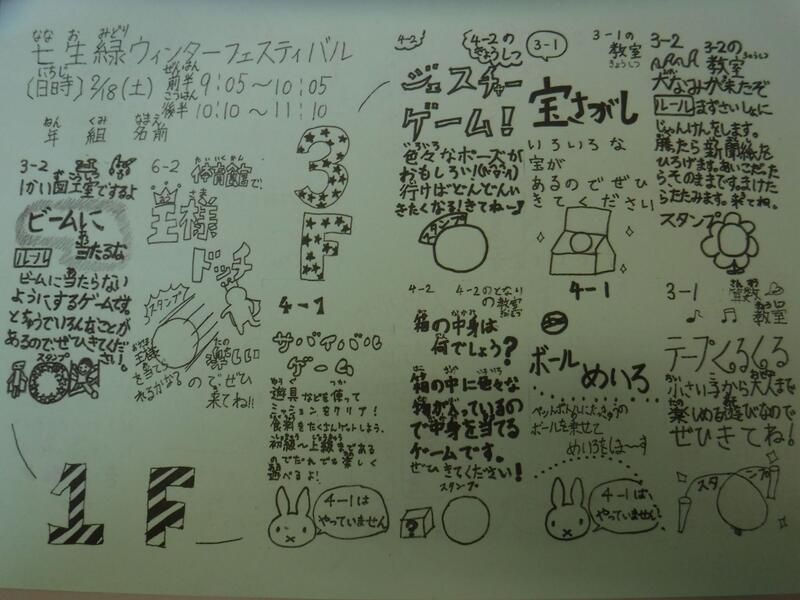 七生緑ウィンターフェスティバル
なな お みどり
(日時) 2/18(土) 前半 9:05〜10:05
にちじ ぜんはん
後半 10:10〜11:10
こうはん
年 組 名前
ねん くみ なまえ
3-2
1かい図工室ですよ
ビームに
当たるな
ルール
ビームに当たらない
ようにするゲームです。
とちゅうでいろんなことが
あるのでぜひきてくださ
い。
スタンプ
6-2 体育館で、
たいいくかん
王様
さま
ドッチ
スタンプ
王様
を当てら
れるかな
楽しい
たの
のでぜひ
来てね!!
1F
3F
4-1
サバイバル
ゲーム
遊具などを使って
ミッションをクリア!
食料をたくさんゲットしよう。
初級〜上級まであるの
でだれでも楽しく
遊べるよ!
4-1は
やっていません
4-2 4-2の
きょうしつ
ジェスチャー
ゲーム!
色々なポーズが
おもしろい!
行けばどんどんい
きたくなる!きてね〜♪
スタンプ
4-2 4-2のとなり
の教室
箱の中身は
何でしょう?
箱の中に色々な
物が入っているの
で中身を当てる
ゲームです。
ぜひきてください!
スタンプ
?
3-1 3-1の
教室
きょうしつ
宝さがし
いろいろな
宝が
あるのでぜひ
きてください
4-1
ボール
めいろ
ペットボトルにたっきゅうの
ボールを乗せて
めいろをほ〜す
4-1は、
やっていません
3-2 3-2の
教室
きょうしつ
犬なみが来たぞ
ルール まずさいしょに
じゃんけんをします。
勝たら新聞紙を
ひろげます。あいこだった
ら、そのままです。まけた
らたたみます。来てね。
スタンプ
3-1 算数
教室
テープくるくる
小さい子から大人まで
楽しめる遊びなので
ぜひきてね!
スタンプ